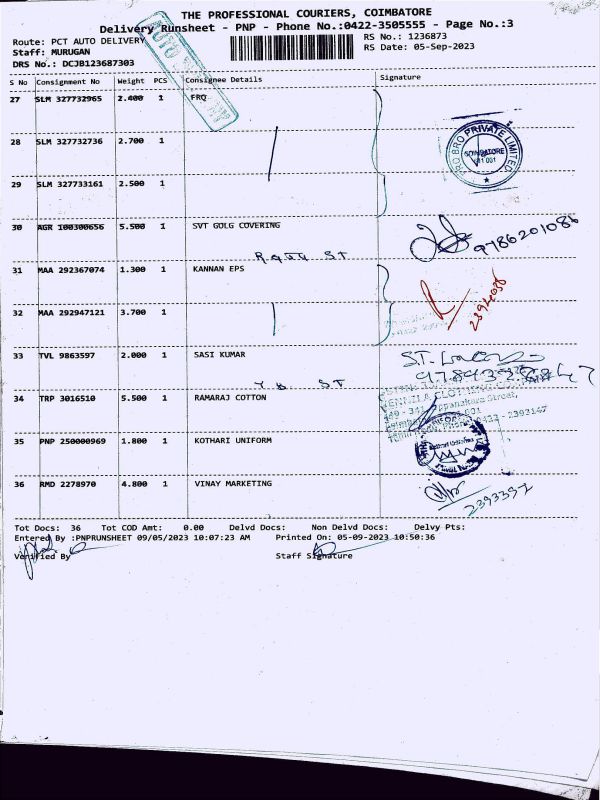 THE PROFESSIONAL COURIERS, COIMBATORE
Delivery Runsheet - PNP - Phone No.:0422-3505555 - Page No.:3
Route: PCT AUTO DELIVERY
RS No.: 1236873
Staff: MURUGAN
RS Date: 05-Sep-2023
DRS No.: DCJB123687303
S No Consignment No Weight PCS Consignee Details Signature
27 SLM 327732965 2.400 1 FRQ
28 SLM 327732736 2.700 1
PRO BRO PRIVATE LIMITED
COIMBATORE
641 001
29 SLM 327733161 2.500 1
30 AGR 100300656 5.500 1 SVT GOLG COVERING
9786201086
Raja ST
31 MAA 292367074 1.300 1 KANNAN EPS
32 MAA 292947121 3.700 1
33 TVL 9863597 2.000 1 SASI KUMAR
34 TRP 3016510 5.500 1 RAMARAJ COTTON
35 PNP 250000969 1.800 1 KOTHARI UNIFORM
36 RMD 2278970 4.800 1 VINAY MARKETING
2393397
Tot Docs: 36 Tot COD Amt: 0.00 Delvd Docs: Non Delvd Docs: Delvy Pts:
Entered By :PNPRUNSHEET 09/05/2023 10:07:23 AM Printed On: 05-09-2023 10:50:36
Verified By Staff Signature